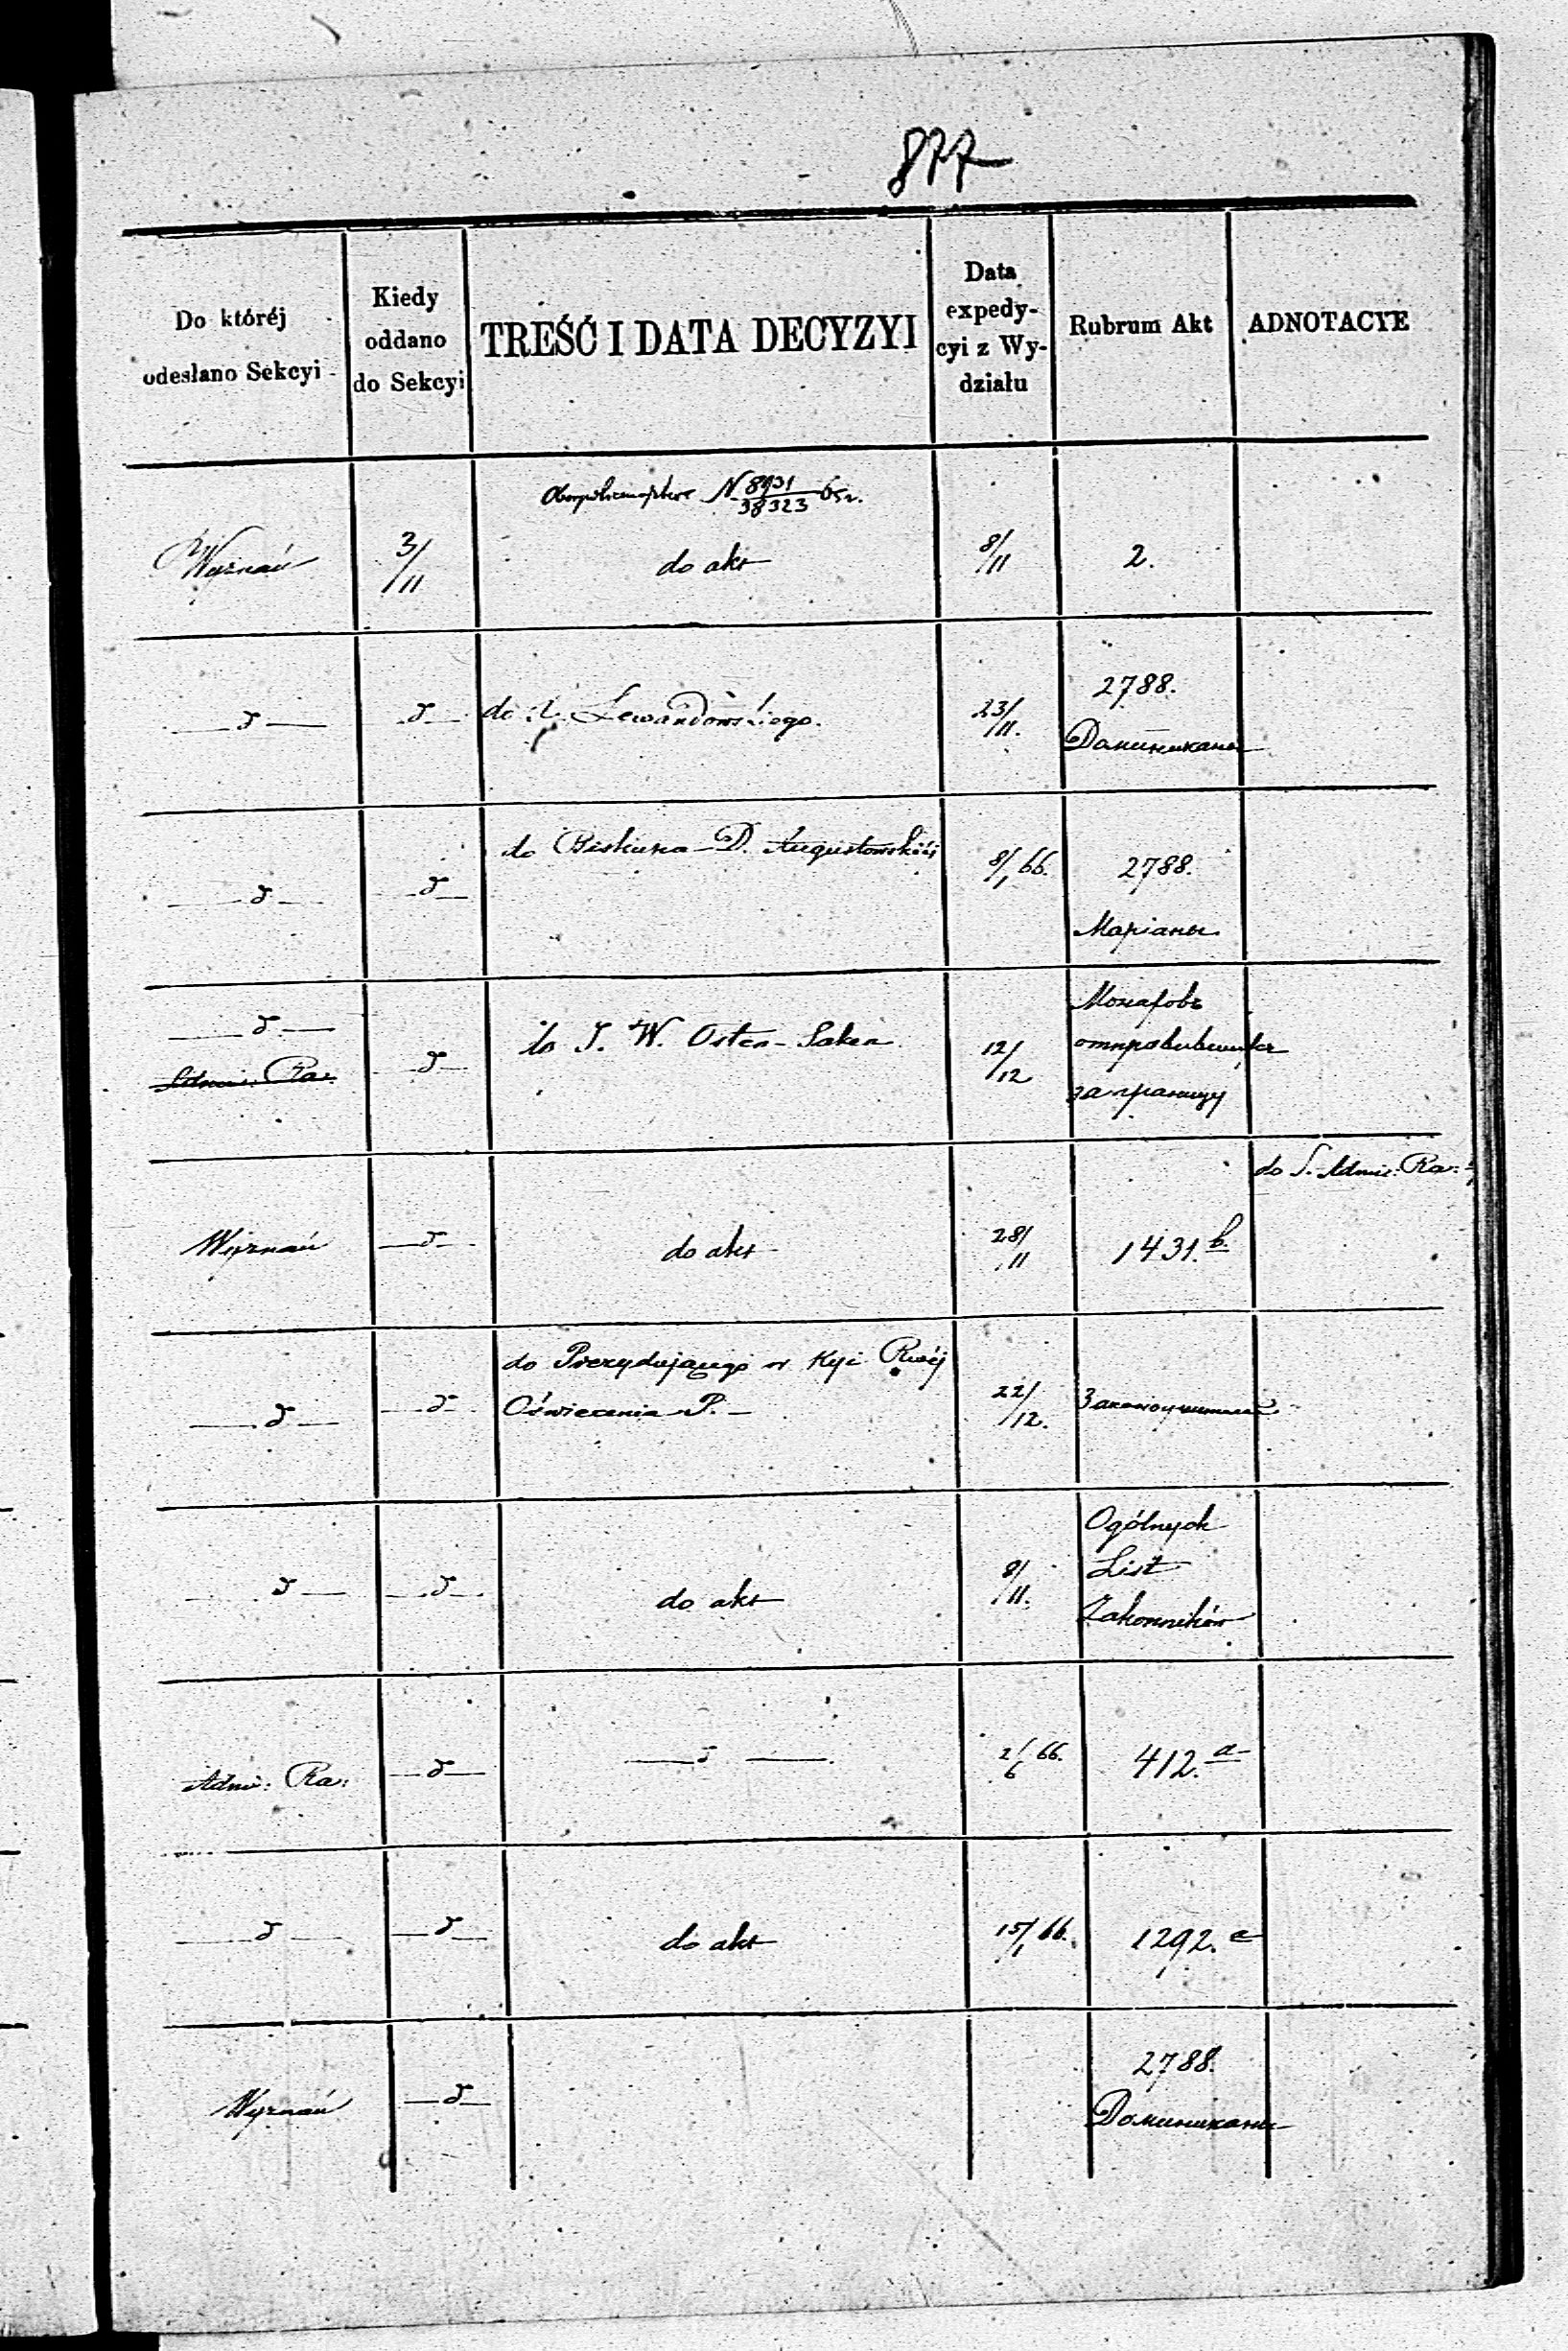 877
Do któréj
odesłano Sekcyi
Kiedy
oddano
do Sekcyi
TREŚĆ I DATA DECYZYI
Data
expedy-
cyi z Wy-
działu
Rubrum Akt
ADNOTACYE
N 8931/38323 65 r.
Wyznań
3/11
do akt
8/11
2.
d
d
do Lewandowskiego.
23/11.
2788.
Доминикане
d
d
do Biskupa D. Augustowskiéj
8/1 66.
2788.
Марiане
d
Admi: Ra:
d
do J. W. Osten-Saken
12/12
Монаховъ
отправившихся
заграницу
Wyznań
d
do akt
28/11
1431. b.
do S. Admi: Ra:
d
d
do Prezydującego w Kyi Rząj
Oświecenia P.
22/12.
d
d
do akt
8/11.
Ogólnych
List
Zakonników
Admi: Ra:
d
d
2/6 66.
412. a
d
d
do akt
15/1 66.
1292. c
Wyznań
d
2788.
Доминикане